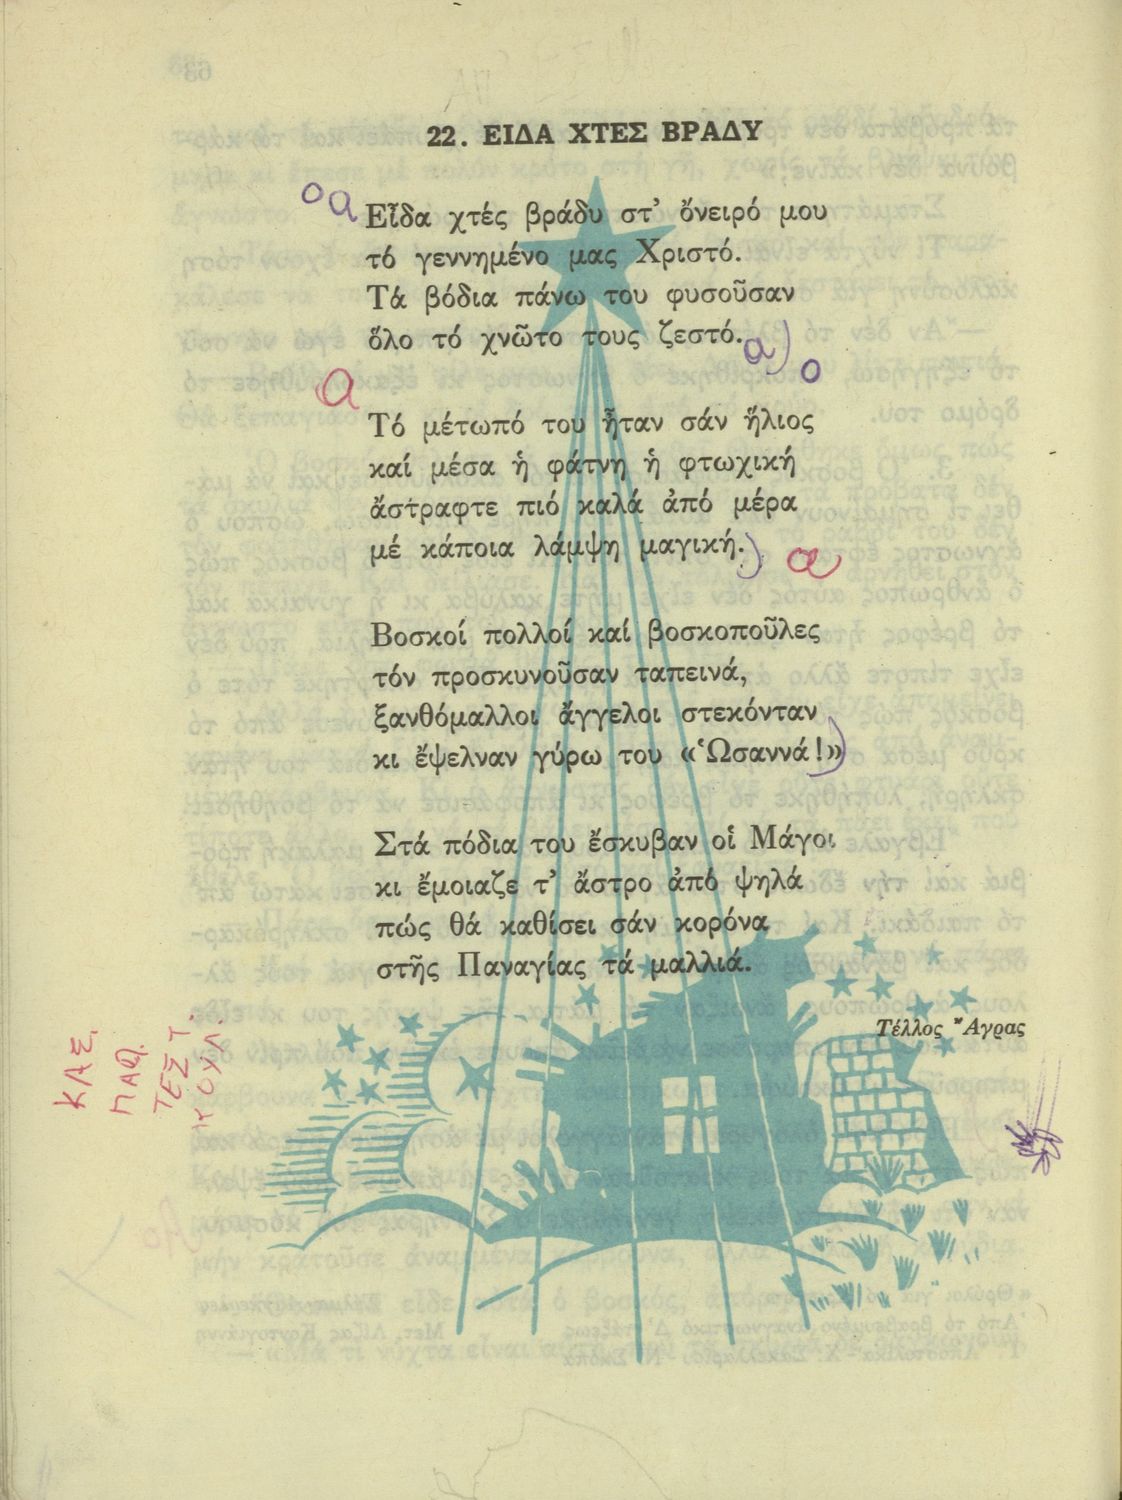 22. ΕΙΔΑ ΧΤΕΣ ΒΡΑΔΥ
ο α
Εἶδα χτές βράδυ στ' ὄνειρό μου
τό γεννημένο μας Χριστό.
Τά βόδια πάνω του φυσοῦσαν
ὅλο τό χνῶτο τους ζεστό.
α) ο
α
Τό μέτωπό του ἦταν σάν ἥλιος
καί μέσα ἡ φάτνη ἡ φτωχική
ἄστραφτε πιό καλά ἀπό μέρα
μέ κάποια λάμψη μαγική.
) α
Βοσκοί πολλοί καί βοσκοποῦλες
τόν προσκυνοῦσαν ταπεινά,
ξανθόμαλλοι ἄγγελοι στεκόνταν
κι ἔψελναν γύρω του «Ὡσαννά!»
)
Στά πόδια του ἔσκυβαν οἱ Μάγοι
κι ἔμοιαζε τ' ἄστρο ἀπό ψηλά
πώς θά καθίσει σάν κορόνα
στῆς Παναγίας τά μαλλιά.
Τέλλος Ἄγρας
ΚΑΣ.
ΤΕΣΤ.